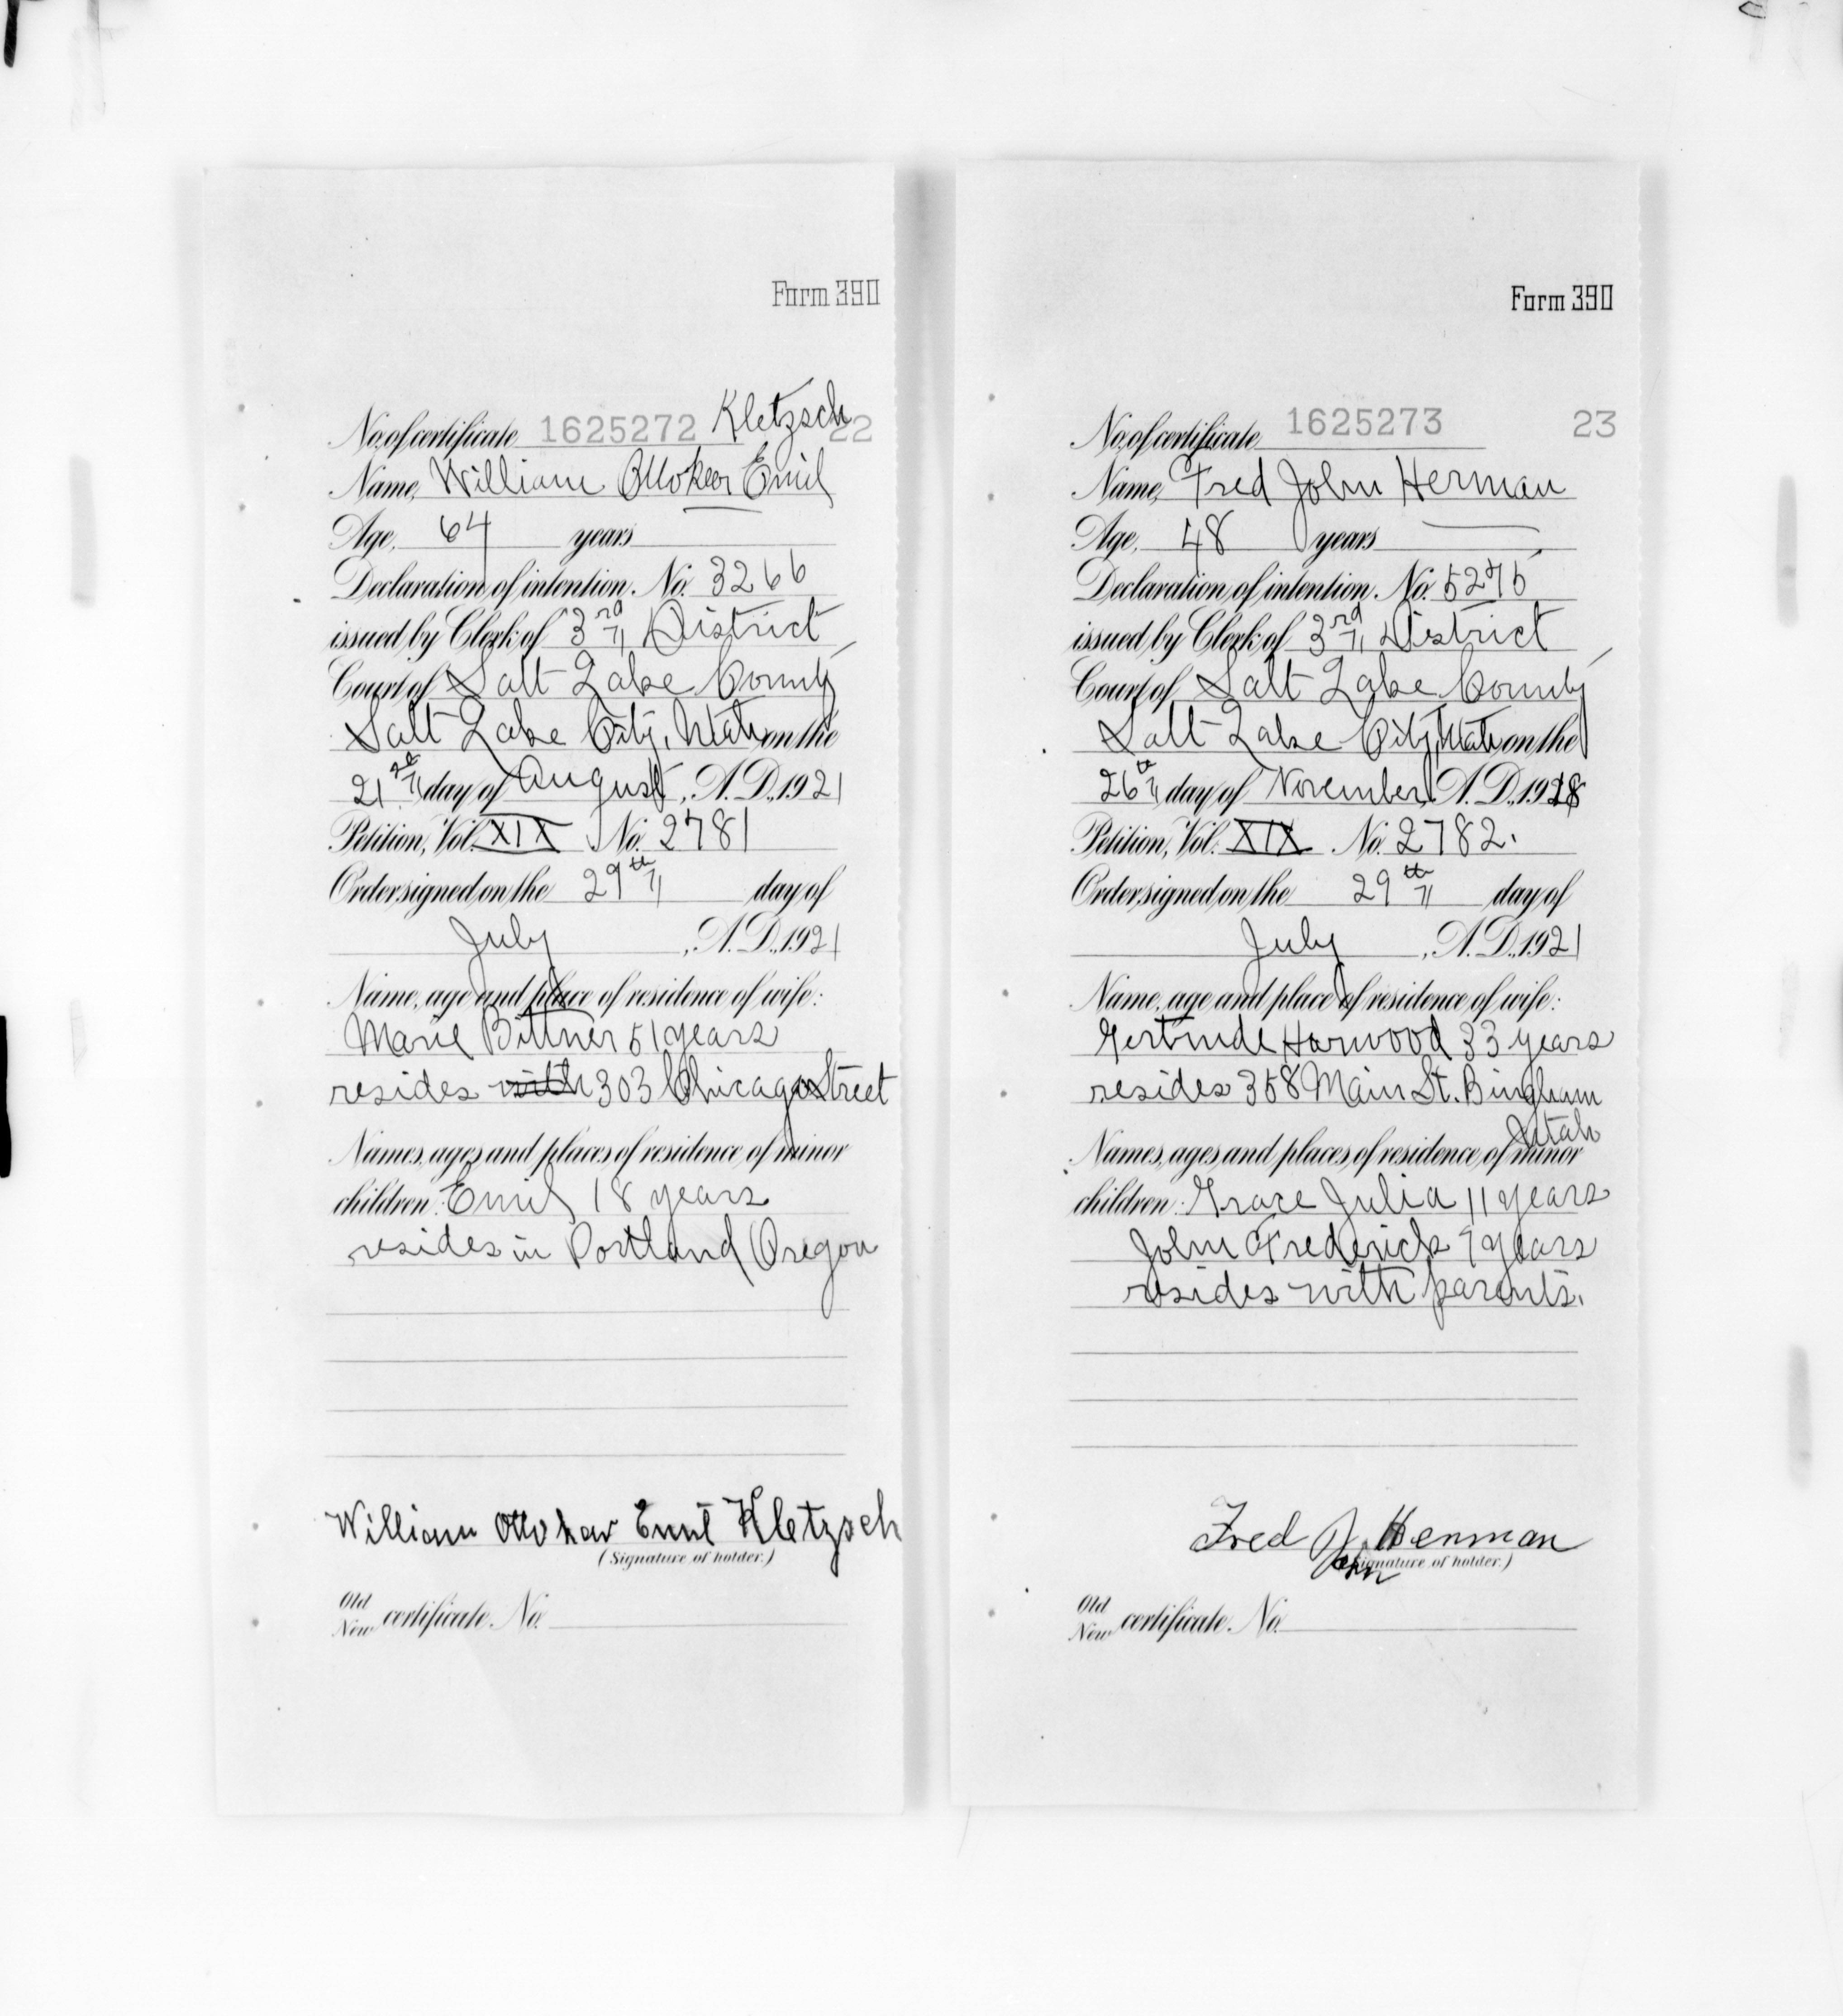 Form 390
No. of certificate 1625272 Kletzsch 22
Name, William Ottokar Emil
Age, 64 years
Declaration of intention. No. 3266
issued by Clerk of 3rd District
Court of Salt Lake County
Salt Lake City, Utah on the
21st day of August, A.D., 1921
Petition, Vol. XIX No. 2781
Order signed on the 29th day of
July, A.D., 1921
Name, age and place of residence of wife:
Marie Bittner 51 years
resides with 303 Chicago Street
Names, ages and places of residence of minor
children: Emil 18 years
resides in Portland Oregon
William Ottokar Emil Kletzsch
(Signature of holder.)
Old
New certificate. No.
Form 390
No. of certificate 1625273 23
Name, Fred John Herman
Age, 48 years
Declaration of intention. No. 5275
issued by Clerk of 3rd District
Court of Salt Lake County
Salt Lake City, Utah on the
26th day of November, A.D., 1918
Petition, Vol. XIX No. 2782.
Order signed on the 29th day of
July, A.D., 1921
Name, age and place of residence of wife:
Gertrude Harwood 33 years
resides 358 Main St. Bingham
Utah
Names, ages and places of residence of minor
children: Grace Julia 11 years
John Frederick 9 years
resides with parents.
Fred John Herman
(Signature of holder.)
Old
New certificate. No.